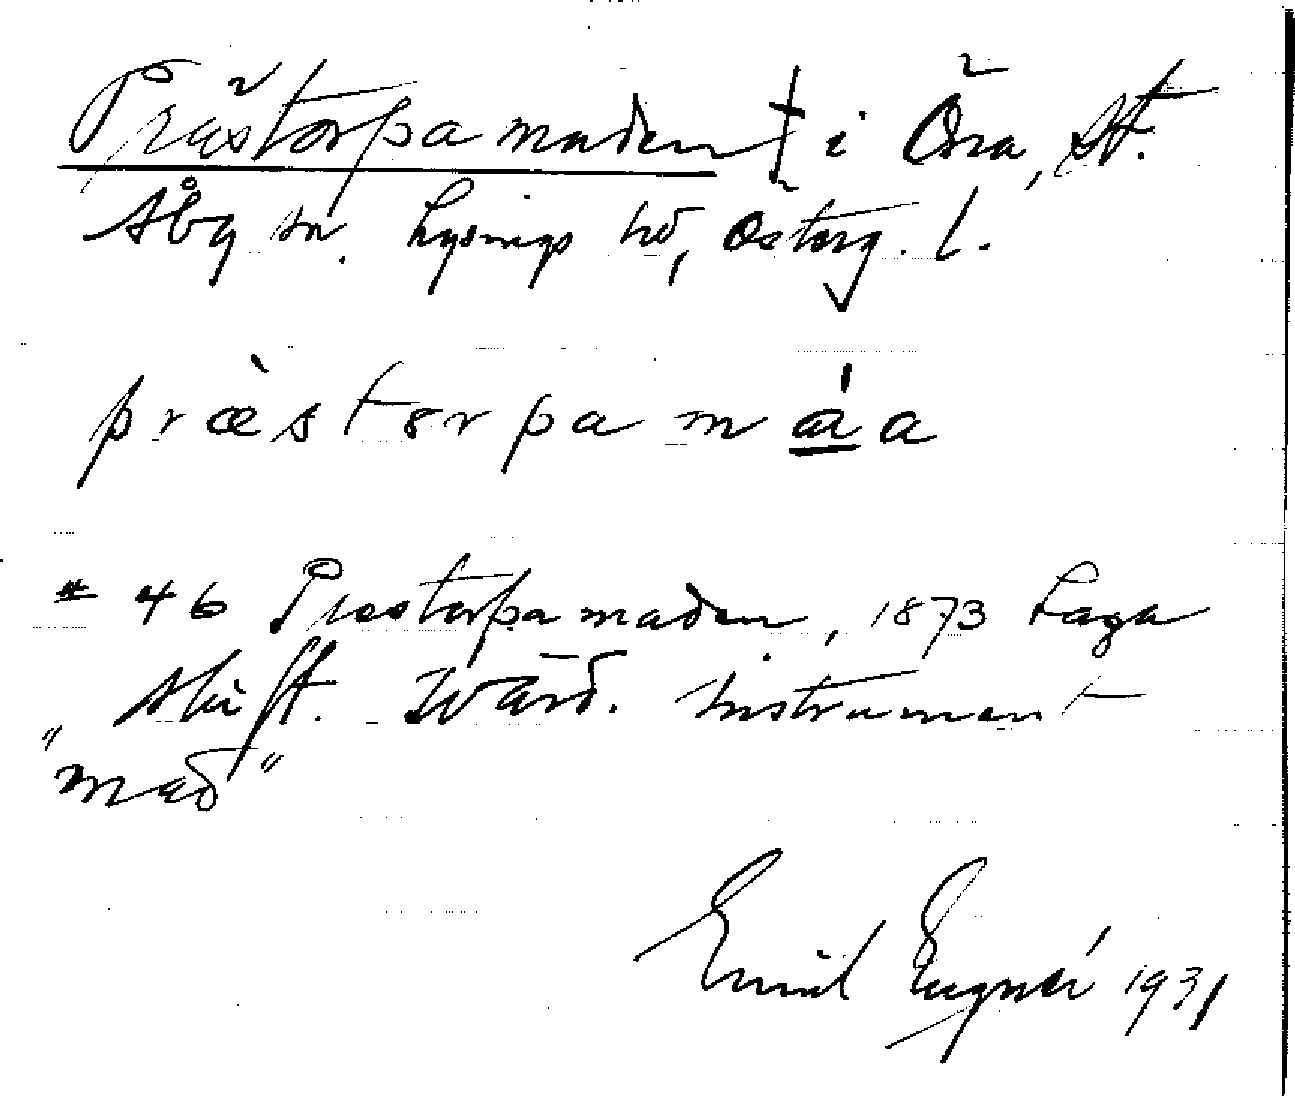 Prästorpamaden ‡ i Öna, St.
Åby sn. Lysings hd, Österg. l.
præstorpamáa
# 46 Prestorpamaden, 1873 Laga
skift. Wärd. instrument
"mad"
Emil Eugné 1931